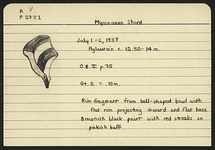 A
P 2721
Mycenaean Sherd
July 1-6, 1937
12.50-14 m.
O.B. II p. 75
.10m.
Rim fragment from bell-shaped bowl with
flat rim projecting inward and flat base
Brownish black paint with red streaks on
pinkish buff.